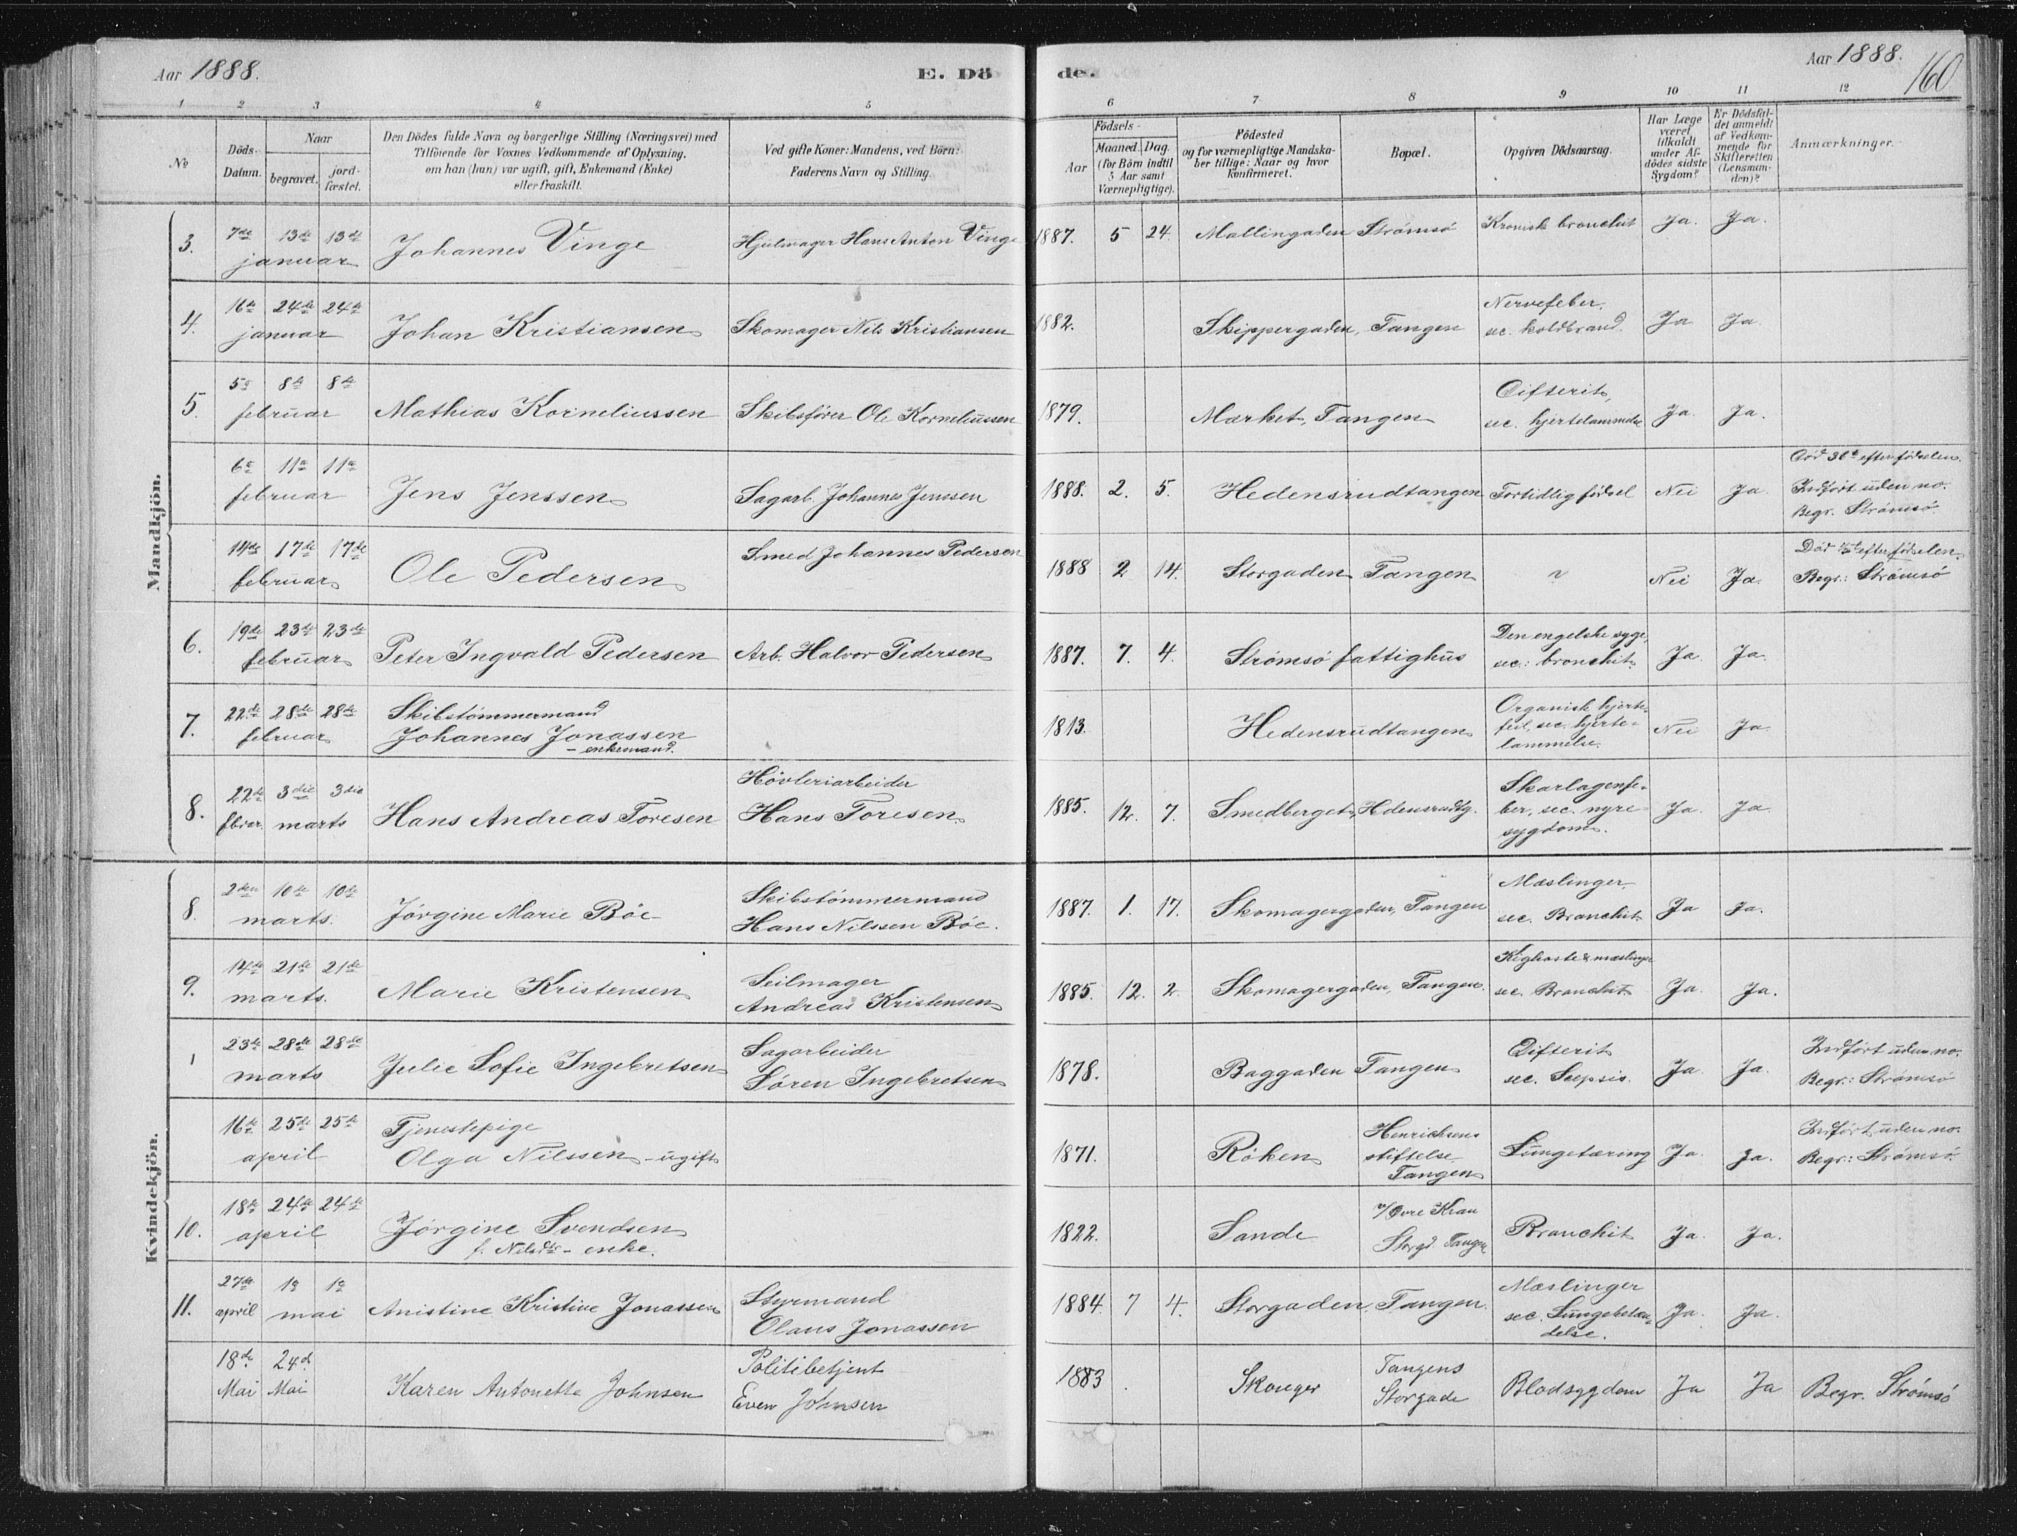 Aar 1888. E. Dö de. Aar 1888. 160
1 2 3 4 5 6 7 8 9 10 11 12
No Döds-Datum. Naar begravet. jord-fæstet. Den Dödes fulde Navn og borgerlige Stilling (Næringsvei) med Tilföiende for Voxnes Vedkommende af Oplysning, om han (hun) var ugift, gift, Enkemand (Enke) eller fraskilt. Ved gifte Koner: Mandens, ved Börn: Faderens Navn og Stilling. Födsels- Aar Maaned. Dag. (for Börn indtil 5 Aar samt Værnepligtige). Födested og for værnepligtige Mandskaber tillige: Naar og hvor konfirmeret. Bopæl. Opgiven Dödsaarsag. Har Læge været tilkaldt under Afdödes sidste Sygdom? Er Dödsfaldet anmeldt af Vedkommende for Skifteretten (Lensmanden)? Anmærkninger.
Mandkjön.
3. 7de januar 13de 13de Johannes Vinge Hjulmager Hans Anton Vinge 1887. 5 24. Mallingaden Strømsø Kronisk bronchit Ja. Ja.
4. 16de januar 24de 24de Johan Kristiansen Skomager Nils Kristiansen 1882. Skippergaden, Tangen Nervefeber, sec. koldbrand. Ja Ja.
5. 5te februar 8de 8de Mathias Korneliussen Skibsfører Ole Korneliussen 1879. Mærket, Tangen Difterit, sec. hjertelammelse Ja Ja.
6te februar 11te 11te Jens Jenssen Sagarb. Johannes Jenssen 1888. 2. 5. Hedensrudtangen Fortidlig fødsel Nei Ja Død efter fødselen. Indført uden no. Begr. Strømsø.
14de februar 17de 17de Ole Pedersen Smed Johannes Pedersen 1888 2 14. Storgaden Tangen Nei Ja. Død efter fødselen. Begr.: Strømsø
6. 19de februar 23de 23de Peter Ingvald Pedersen Arb. Halvor Pedersen 1887. 7. 4. Strømsø fattighus Den engelske syge, sec: bronchit. Ja. Ja.
7. 22de februar 28de 28de Skibstømmermand Johannes Jonassen - enkemand. 1813. Hedensrudtangen Organisk hjertefeil, sec. hjertelammelse. Nei Ja
8. 22de fbrar 3die marts 3die Hans Andreas Toresen Høvleriarbeider Hans Toresen. 1885. 12. 7. Smedberget, Hdensrudtg. Skarlagenfeber, sec. nyresygdom. Ja. Ja
Kvindekjön.
8. 2den marts. 10de 10de Jörgine Marie Böe Skibstømmermand Hans Nilssen Böe. 1887. 1. 17. Skomagergaden, Tangen Mæslinger. sec. Bronchit Ja Ja.
9. 14de marts. 21de 21de Marie Kristensen Seilmager Andreas Kristensen 1885. 12. 2. Skomagergaden, Tangen. Kighoste & mæslinger sec. Bronchit Ja. Ja.
23de marts 28de 28de Julie Sofie Ingebretsen Sagarbeider Søren Ingebretsen 1878. Baggaden Tangen Difterit sec. Sepsis. Ja Ja. Indført uden no. Begr.: Strømsø
16de april 25de 25de Tjenestepige Olga Nilssen - ugift 1871. Röken Henrichsens stiftelse Tangen Lungetæring Ja Ja. Indført uden no. Begr: Strømsø.
10. 18de april 24de 24de Jörgine Svendsen f. Nilsdtr - enke. 1822. Sande v/ Øvre Kran Storgd. Tangen Bronchit Ja. Ja.
11. 27de april 1ste mai 1ste Anistine Kristine Jonassen Styrmand Olaus Jonassen 1884. 7 4. Storgaden, Tangen. Mæslinger sec. Lungebetændelse. Ja. Ja.
18de Mai 24de Mai Karen Antonette Johnsen Politibetjent Even Johnsen 1883 Skouger Tangens Storgade Blodsygdom Ja Ja Begr. Strømsø